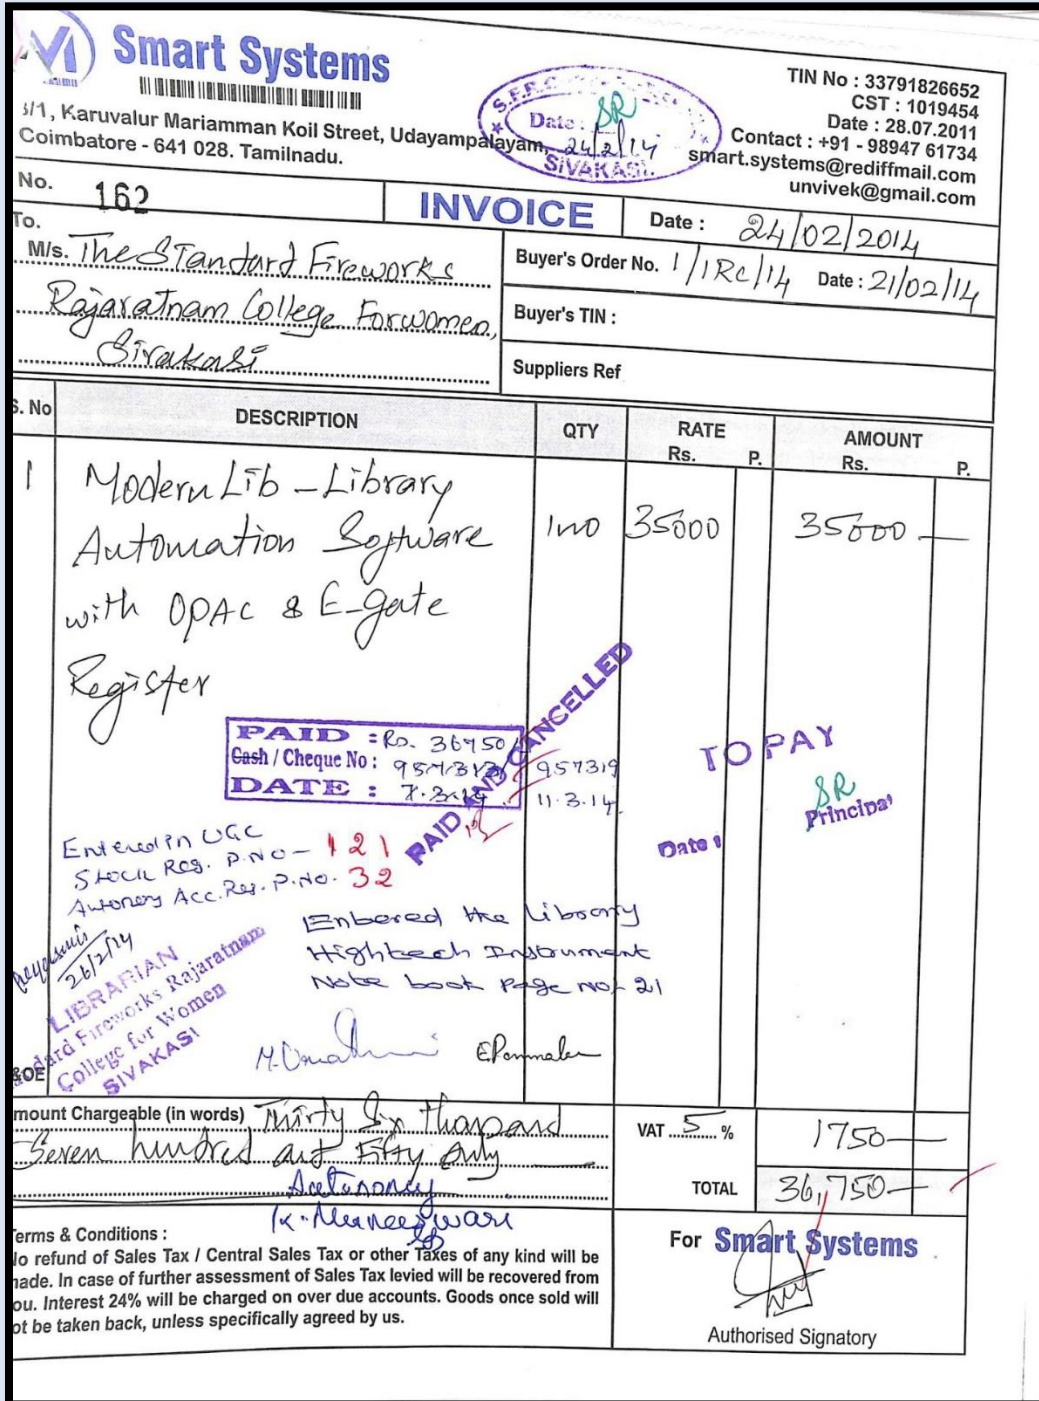 Smart Systems
3/1, Karuvalur Mariamman Koil Street, Udayampalayam,
Coimbatore - 641 028. Tamilnadu.
TIN No : 33791826652
CST : 1019454
Date : 28.07.2011
Contact : +91 - 98947 61734
smart.systems@rediffmail.com
unvivek@gmail.com
Date : SR
24/2/14
SIVAKASI.
No. 162
INVOICE
Date : 24/02/2014
To.
M/s. The STandard Fireworks
Rajaratnam College Forwomen,
Sivakasi
Buyer's Order No. 1/IRC/14 Date : 21/02/14
Buyer's TIN :
Suppliers Ref
S. No DESCRIPTION QTY RATE AMOUNT
Rs. P. Rs. P.
1 Modern Lib - Library
Automation Software 1no 35000 35000
with OPAC & E-gate
Register
PAID : Rs. 36750/
Cash / Cheque No : 957319
DATE : 7.3.14 11.3.14.
PAID AND CANCELLED
TO PAY
SR
Principal
Date :
Entered in UGC
Stock Reg. P.NO - 121
Autonomy Acc. Reg. P.No. 32
26/2/14
LIBRARIAN
Standard Fireworks Rajaratnam
College for Women
SIVAKASI
Enbered the library
Hightech Instrument
Note book Page No/- 21
&OE
mount Chargeable (in words) Thirty Six Thousand
Seven hundred and Fifty Only
Autonomy
K. Muneeswari
VAT 5 % 1750
TOTAL 36,750
Terms & Conditions :
No refund of Sales Tax / Central Sales Tax or other Taxes of any kind will be
made. In case of further assessment of Sales Tax levied will be recovered from
you. Interest 24% will be charged on over due accounts. Goods once sold will
not be taken back, unless specifically agreed by us.
For Smart Systems
Authorised Signatory